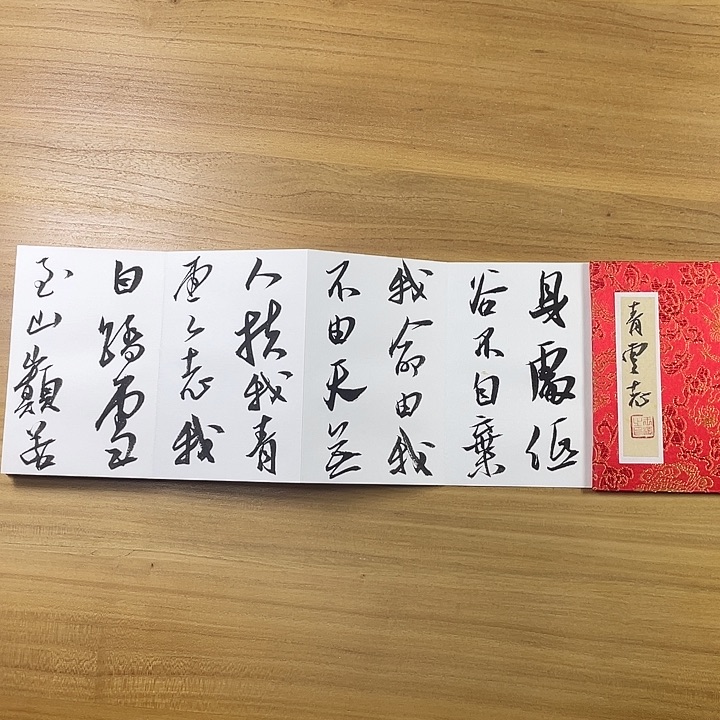 青雲志
身處低
谷不自棄
我命由我
不由天無
人扶我青
雲之志我
自踏雪
至山巔若